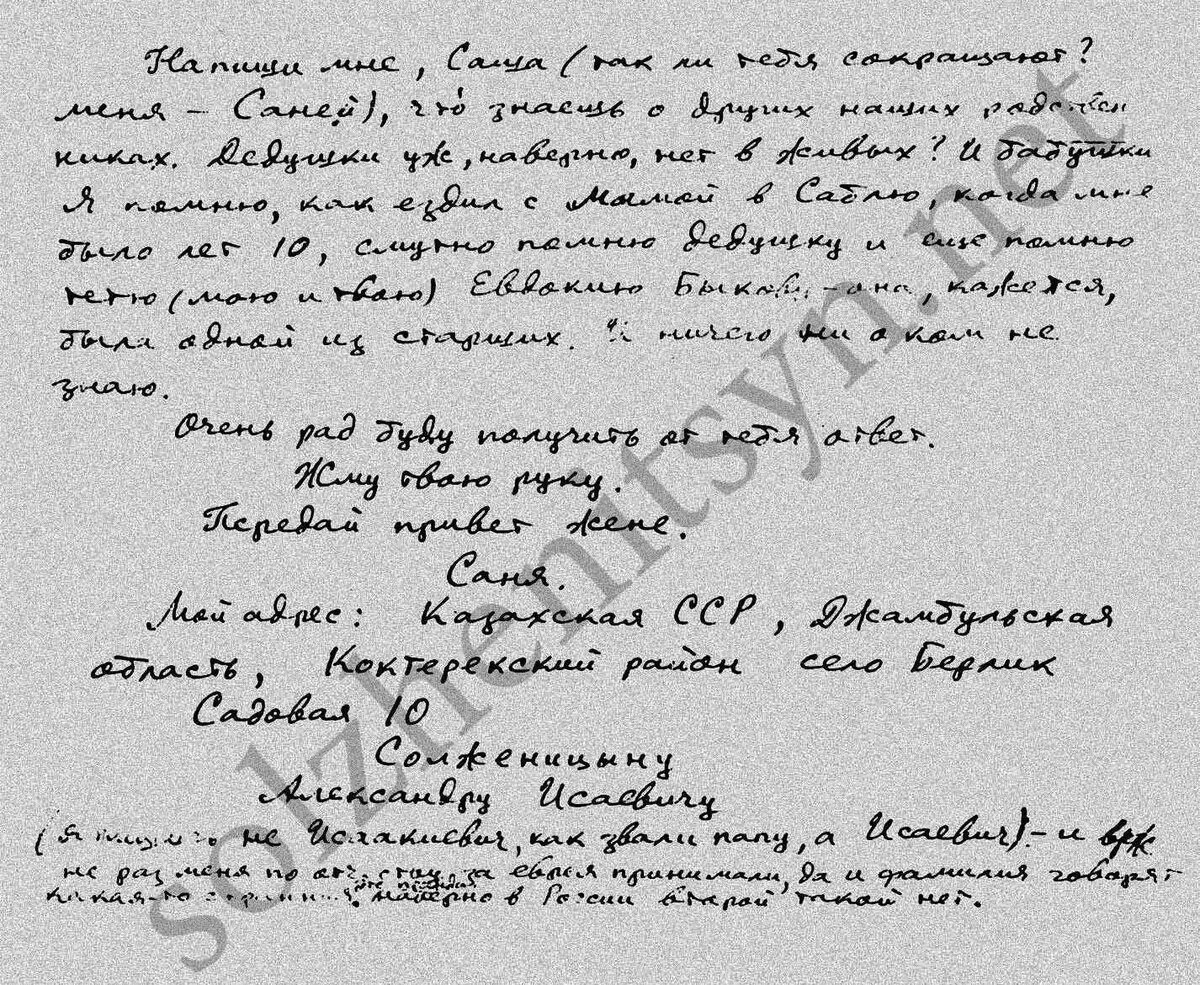 Напиши мне, Саша (так ли тебя сокращают?
меня – Саней), что́ знаешь о других наших родствен
никах. Дедушки уж, наверно, нет в живых? И бабушки
Я помню, как ездил с мамой в Саблю, когда мне
было лет 10, смутно помню дедушку и еще помню
тетю (мою и твою) Евдокию Быкову – она, кажется,
была одной из старших. И ничего ни о ком не
знаю.
Очень рад буду получить от тебя ответ.
Жму твою руку.
Передай привет жене.
Саня.
Мой адрес: Казахская ССР, Джамбульская
область, Коктерекский район село Берлик
Садовая 10
Солженицыну
Александру Исаевичу
(Я не Исаакиевич, как звали папу, а Исаевич) – и
не раз меня по за еврея принимали, да и фамилия говорят
какая-то странная, наверно в России второй такой нет.
solzhenitsyn.net